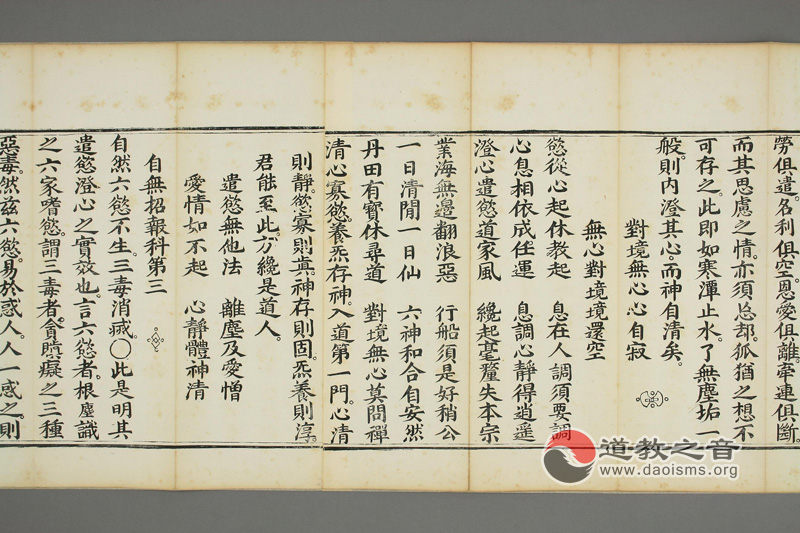 勞俱遣。名利俱空。恩愛俱離。牽連俱斷。
而其思慮之情。亦須忘却。狐猶之想不
可存之。此即如寒潭止水。了無塵垢一
般。則内澄其心。而神自清矣。
對境無心心自寂
無心對境境還空
慾從心起休教起　息在人調須要調
心息相依成任運　息調心靜得逍遥
澄心遣慾道家風　纔起毫釐失本宗
業海無邊翻浪惡　行船須是好稍公
一日清閒一日仙　六神和合自安然
丹田有寳休尋道　對境無心莫問禪
清心寡慾。養炁存神。入道第一門。心清
則靜。慾寡則真。神存則固。炁養則淳。
君能至此。方纔是道人。
遣慾無他法　離塵及愛憎
愛情如不起　心靜體神清
自無招報科第三
自然六慾不生。三毒消滅。〇此是明其
遣慾澄心之實效也。言六慾者。根塵識
之六家嗜慾。謂三毒者。貪瞋癡之三種
惡毒。然兹六慾。易於惑人。人一惑之。則
道教之音
www.daoisms.org